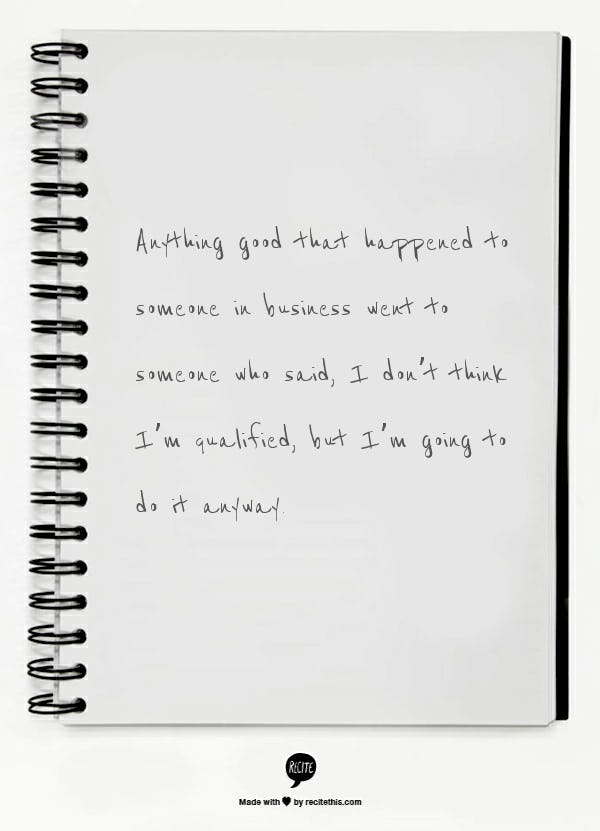 Anything good that happened to
someone in business went to
someone who said, I don't think
I'm qualified, but I'm going to
do it anyway.
RECITE
Made with ♥ by recitethis.com